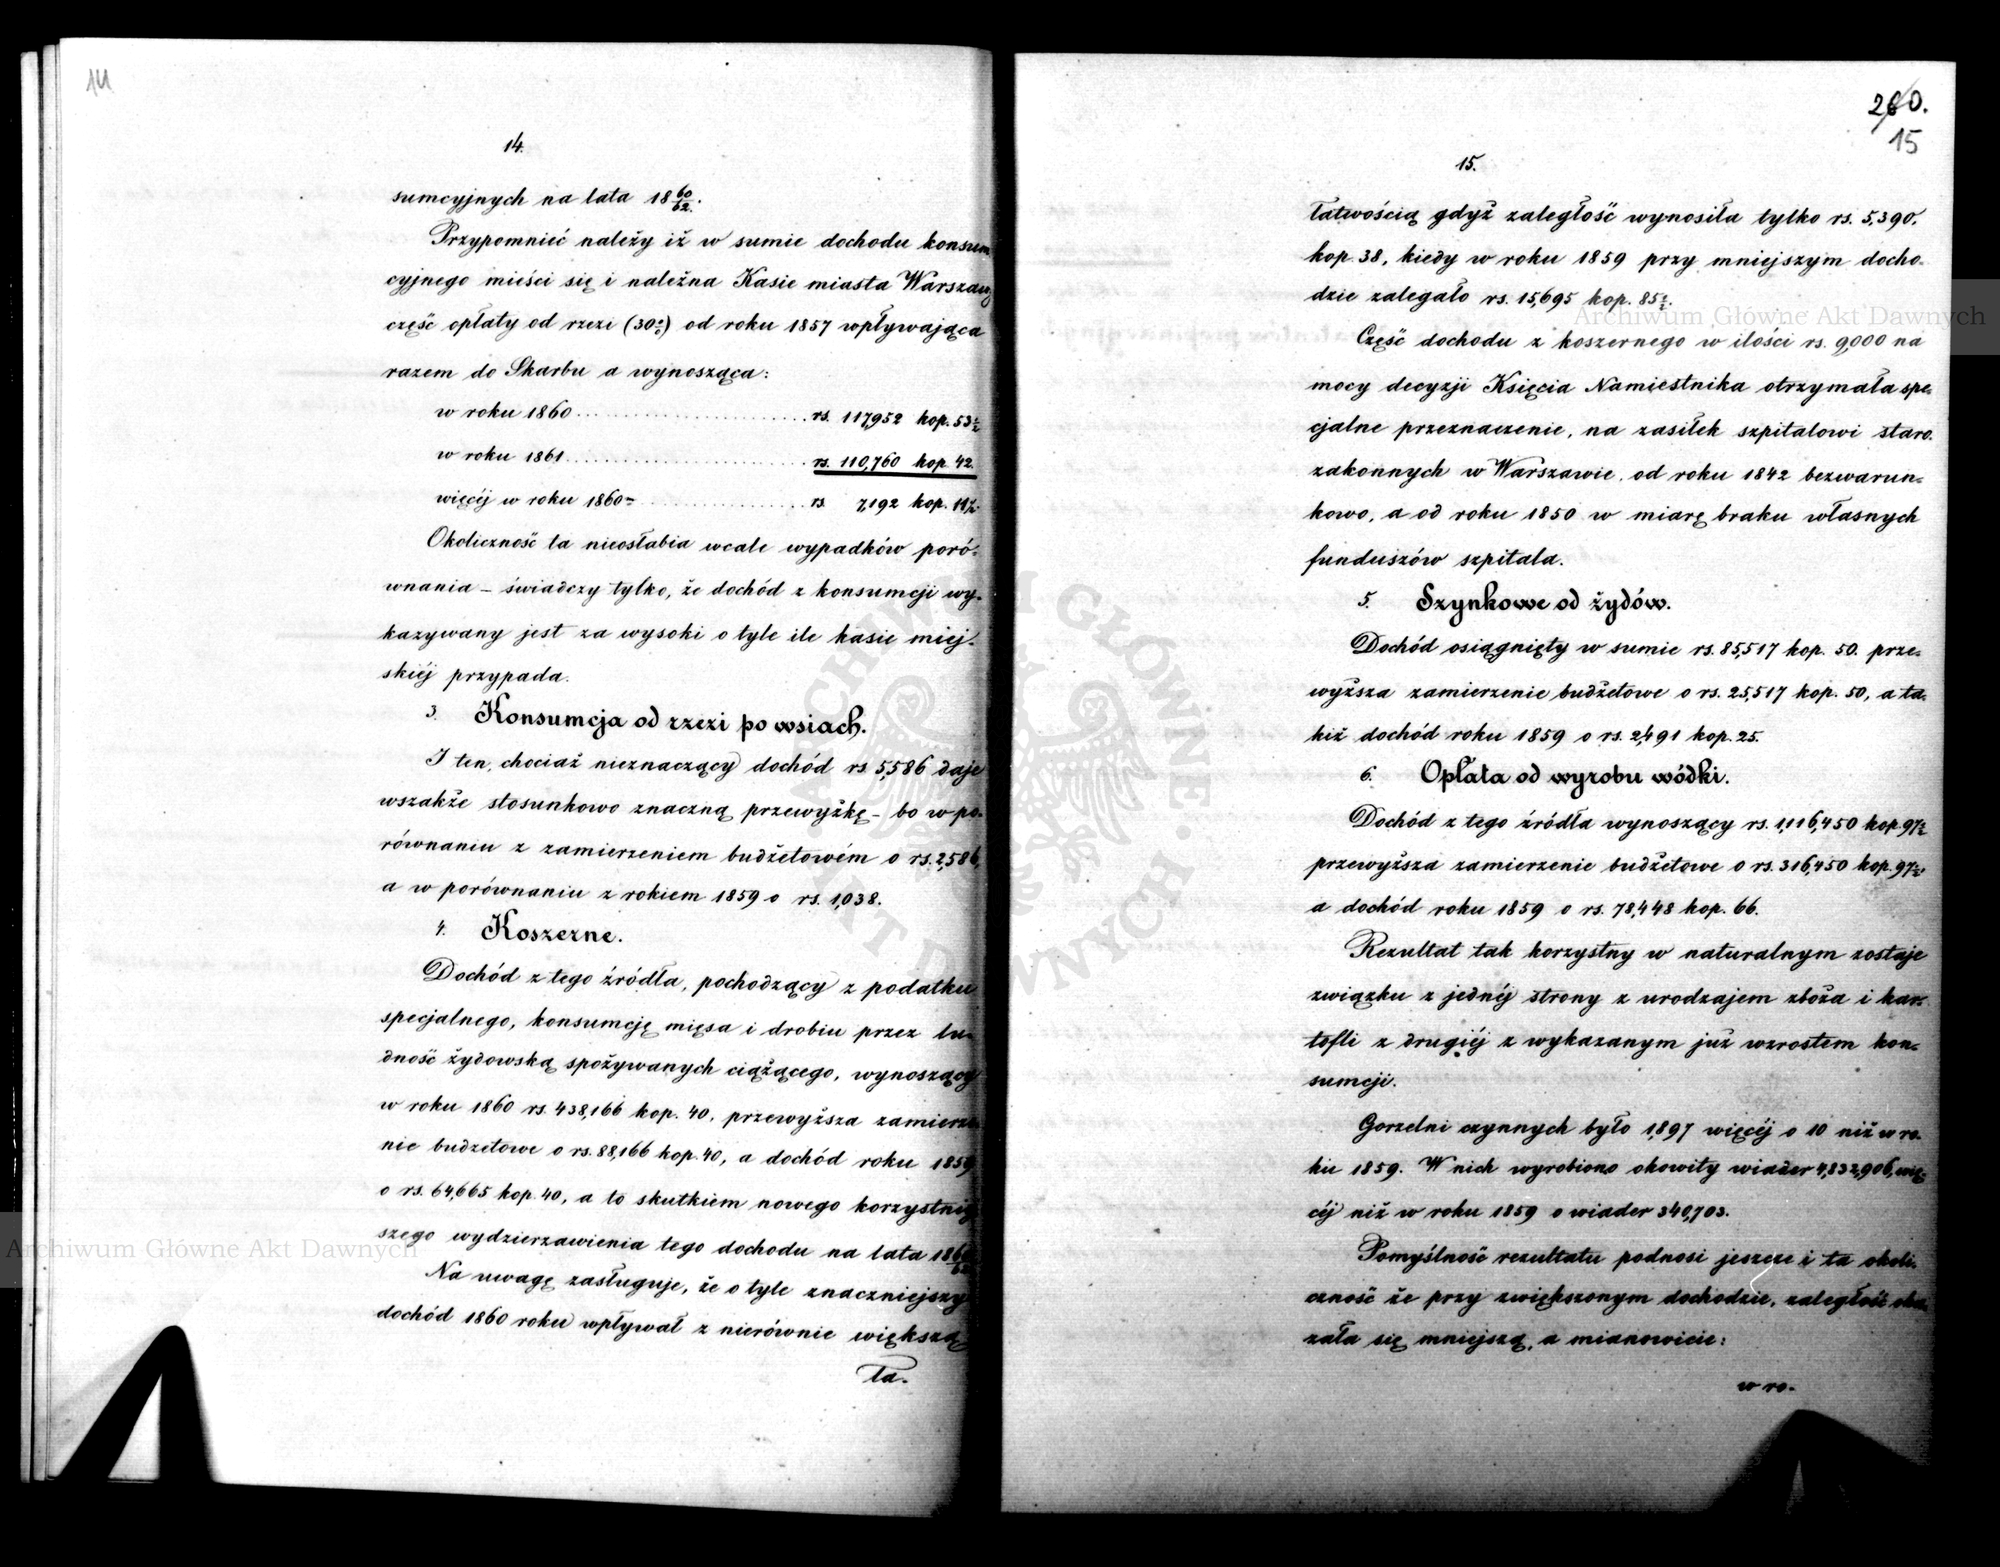 14
14.
sumcyjnych na lata 18 60/62.
Przypomnieć należy iż w sumie dochodu konsum
cyjnego mieści się i należna Kasie miasta Warszawy
część opłaty od rzezi (30%) od roku 1857 wpływająca
razem do Skarbu a wynosząca:
w roku 1860 .......... rs. 117,952 kop. 53½
w roku 1861 .......... rs. 110,760 kop. 42.
więcéj w roku 1860m .......... rs. 7,192 kop. 11½.
Okoliczność ta nieosłabia wcale wypadków poró-
wnania – świadczy tylko, że dochód z konsumcji wy-
kazywany jest za wysoki o tyle ile kasie miej-
skiéj przypada.
3. Konsumcja od rzezi po wsiach.
I ten, chociaż nieznaczący dochód rs 5,586 daje
wszakże stosunkowo znaczną przewyżkę – bo w po-
równaniu z zamierzeniem budżetowém o rs. 2,586,
a w porównaniu z rokiem 1859 o rs. 1,038.
4. Koszerne.
Dochód z tego źródła, pochodzący z podatku
specjalnego, konsumcję mięsa i drobiu przez lu-
dność żydowską spożywanych ciążącego, wynoszący
w roku 1860 rs. 438,166 kop. 40, przewyższa zamierze-
nie budżetowe o rs. 88,166 kop. 40, a dochód roku 1859
o rs. 64,665 kop. 40, a to skutkiem nowego korzystniej
szego wydzierzawienia tego dochodu na lata 18 60/62
Na uwagę zasługuje, że o tyle znaczniejszy
dochód 1860 roku wpływał z nierównie większą
ła-
200.
15
15.
łatwością gdyż zaległość wynosiła tylko rs. 5,390.
kop. 38, kiedy w roku 1859 przy mniejszym docho-
dzie zalegało rs. 15,695 kop. 85½.
Część dochodu z koszernego w ilości rs. 9,000 na
mocy decyzji Księcia Namiestnika otrzymała spe-
cjalne przeznaczenie, na zasiłek szpitalowi staro-
zakonnych w Warszawie, od roku 1842 bezwarun-
kowo, a od roku 1850 w miarę braku własnych
funduszów szpitala.
5. Szynkowe od żydów.
Dochód osiągnięty w sumie rs. 85,517 kop. 50. prze-
wyższa zamierzenie budżetowe o rs. 25,517 kop. 50, a ta-
kiż dochód roku 1859 o rs. 2,491 kop. 25.
6. Opłata od wyrobu wódki.
Dochód z tego źródła wynoszący rs. 1,116,450 kop. 97½
przewyższa zamierzenie budżetowe o rs. 316,450 kop. 97½.
a dochód roku 1859 o rs. 78,448 kop. 66.
Rezultat tak korzystny w naturalnym zostaje
związku z jednéj strony z urodzajem zboża i kar-
tofli z drugiéj z wykazanym już wzrostem kon-
sumcji.
Gorzelni czynnych było 1,897 więcéj o 10 niż w ro-
ku 1859. W nich wyrobiono okowity wiader 4,832,906, wię-
céj niż w roku 1859 o wiader 340,703.
Pomyślność rezultatu podnosi jeszcze i ta okoli-
czność że przy zwiększonym dochodzie, zaległość oka-
zała się mniejszą, a mianowicie:
w ro-
Archiwum Główne Akt Dawnych
Archiwum Główne Akt Dawnych
ARCHIWUM GŁÓWNE AKT DAWNYCH